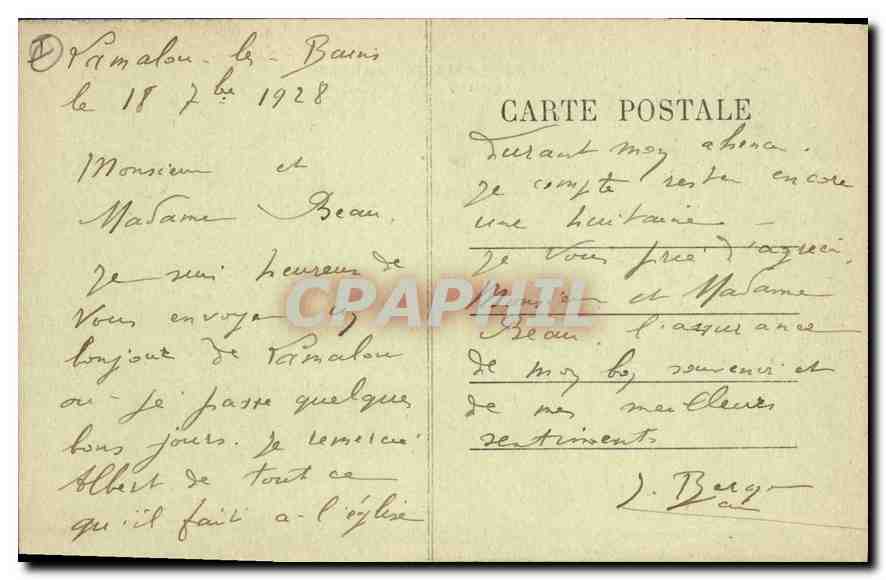 Lamalou-les-Bains
le 18 7bre 1928
Monsieur et
Madame Beau.
Je suis heureux de
Vous envoyer un
bonjour de Lamalou
ou je passe quelques
bons jours. Je remercie
Albert de tout ce
qu'il fait a l'église
CARTE POSTALE
durant mon absence.
Je compte rester encore
une huitaine -
Je Vous prie d'agréer,
Monsieur et Madame
Beau, l'assurance
de mon bon souvenir et
de mes meilleurs
sentiments
J. Berg
CPAPHIL